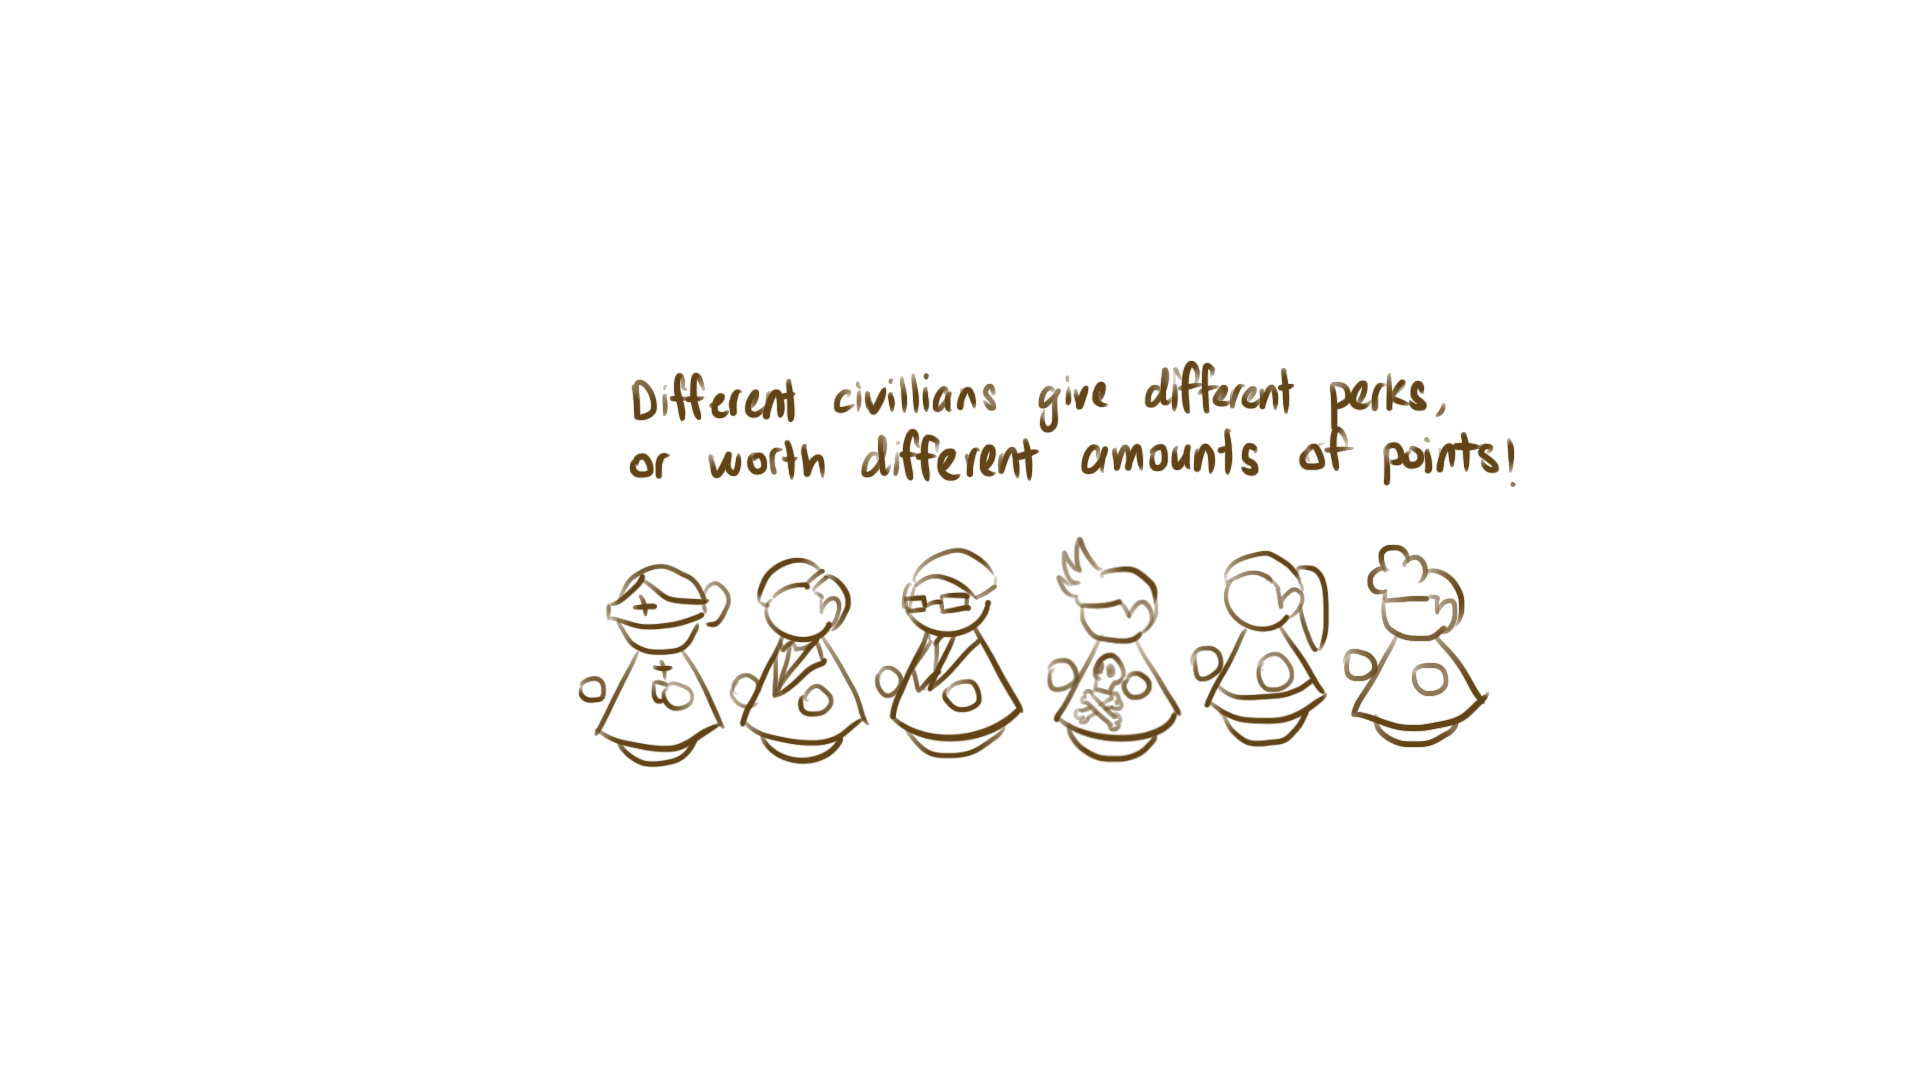 Different civillians give different perks,
or worth different amounts of points!